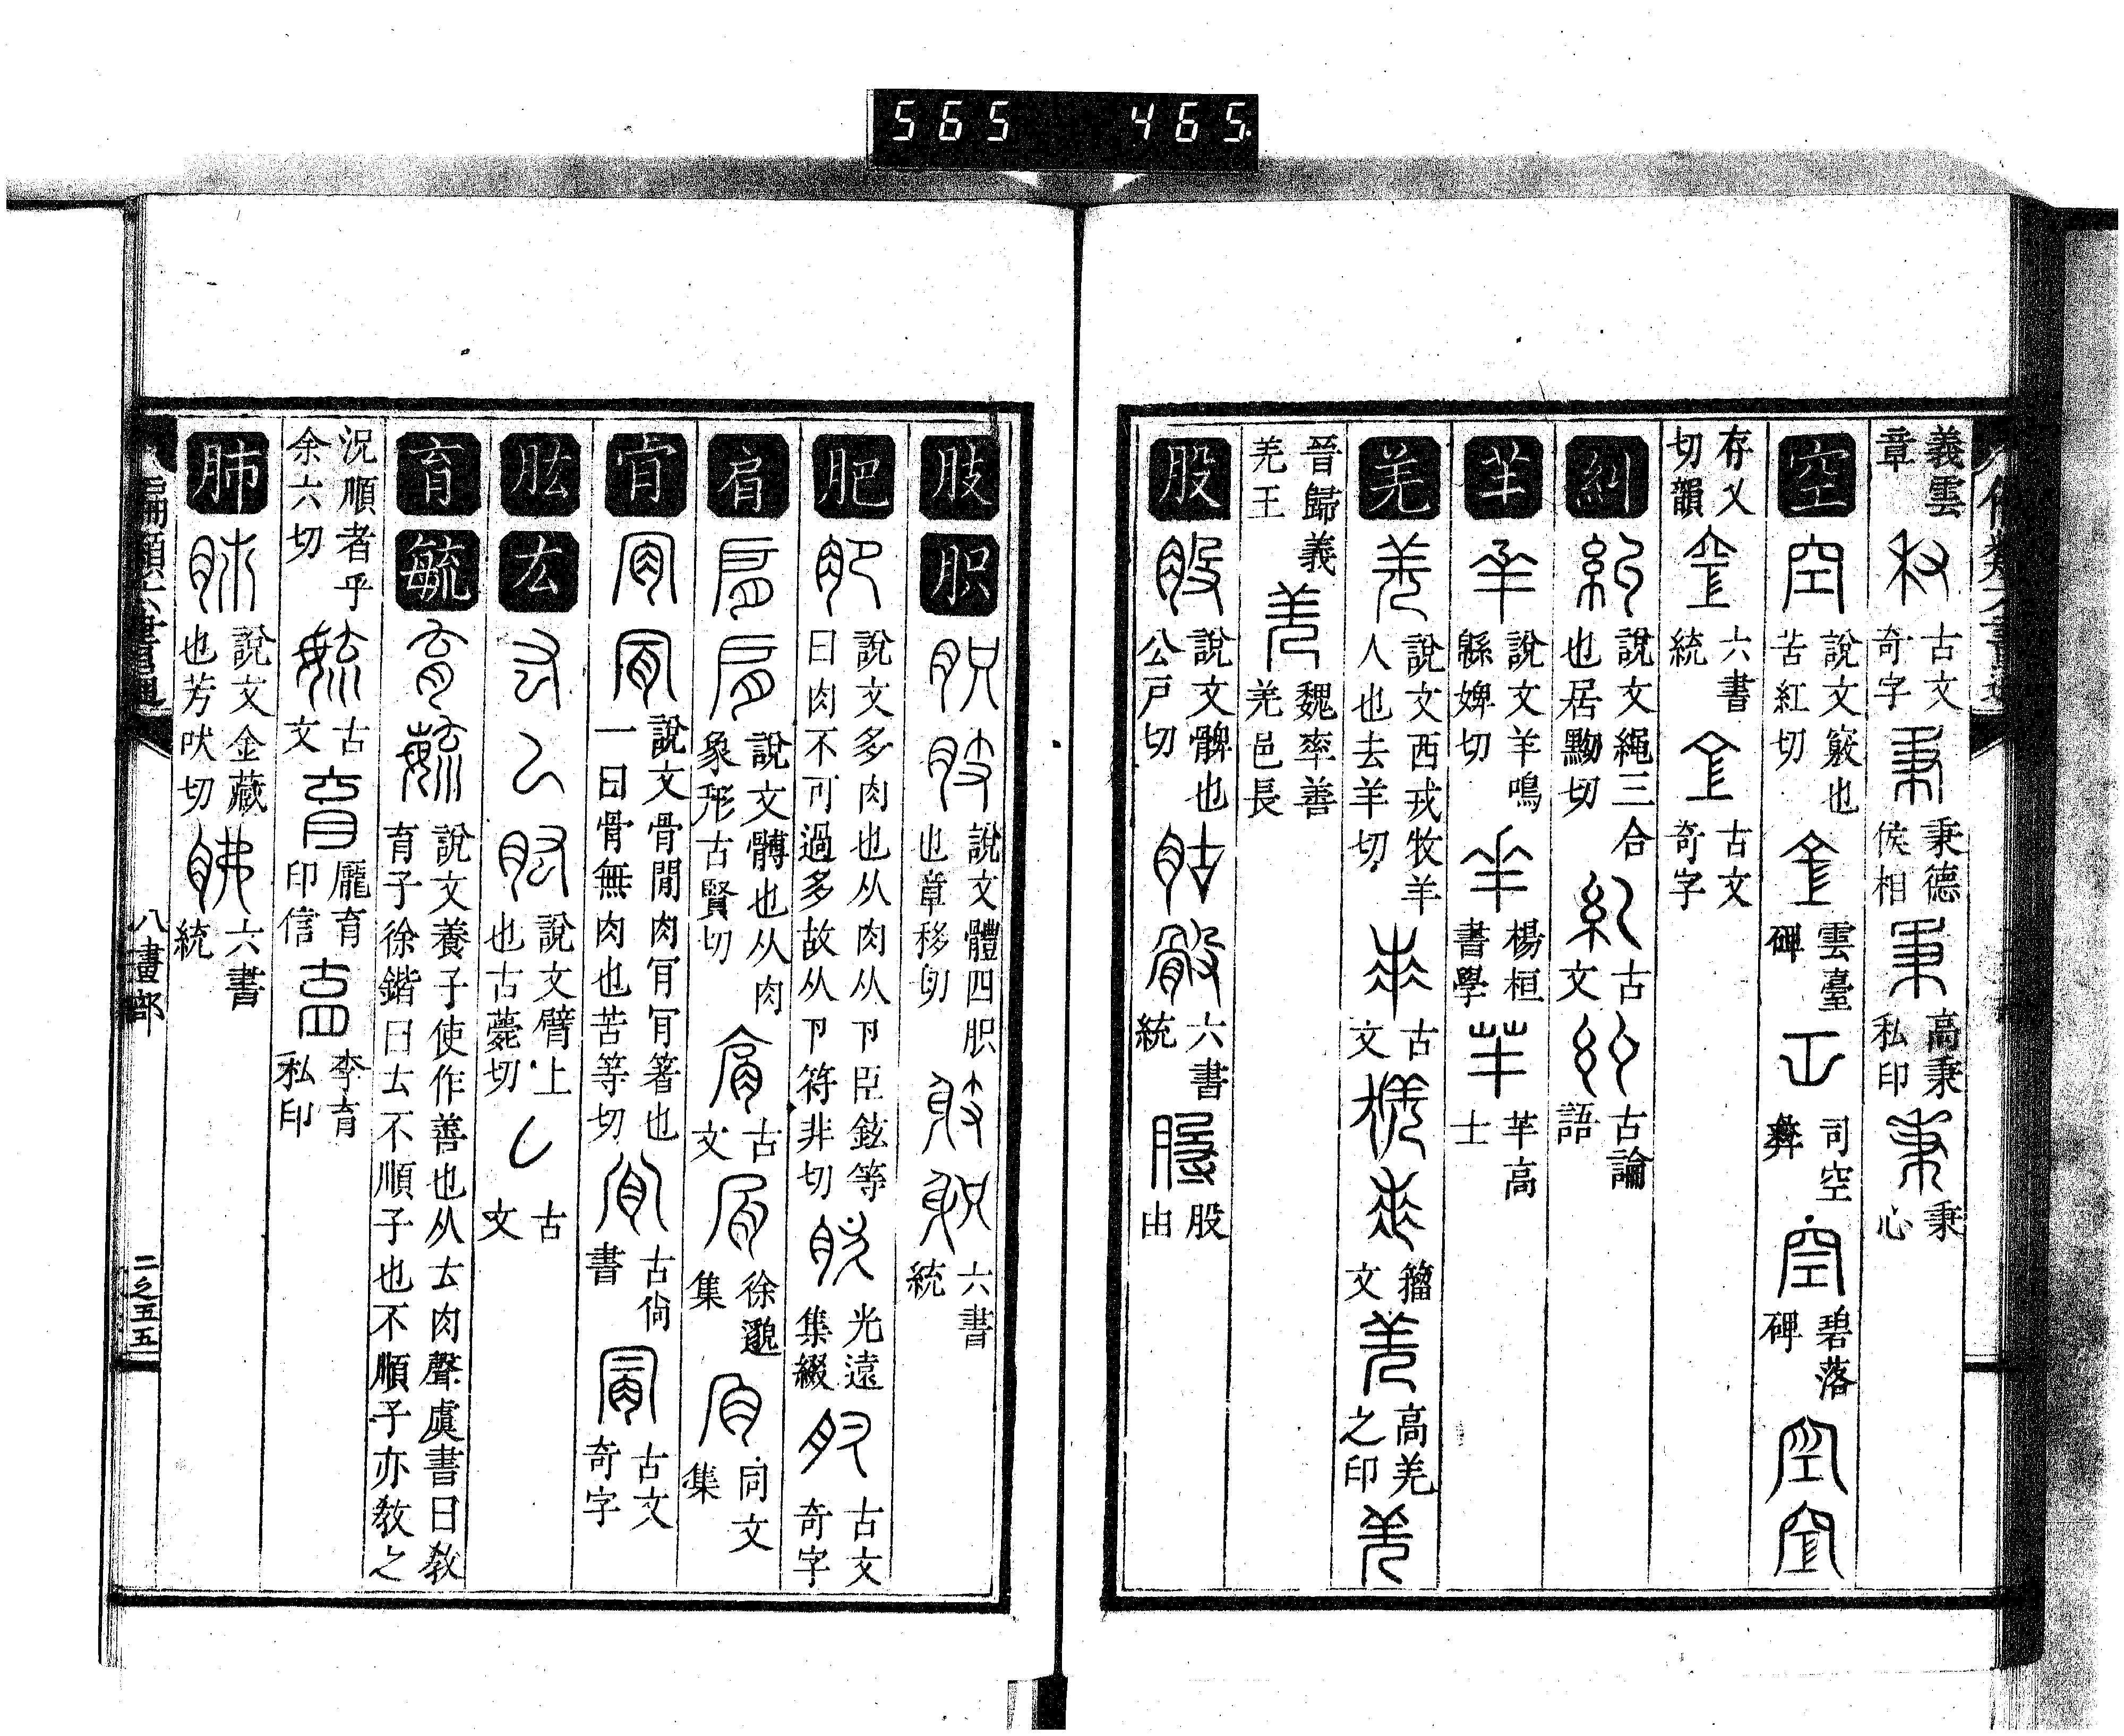 565 465
義雲章 古文奇字 秉德侯相 高秉私印 秉心
空 說文竅也苦紅切 雲臺碑 司空彝 碧落碑
存乂切韻 六書統 古文奇字
糾 說文繩三合也居黝切 古文 古論語
芉 說文羊鳴緜婢切 楊桓書學 芉高士
羌 說文西戎牧羊人也去羊切 古文 籀文 高羌之印
晉歸義羌王 魏率善羌邑長
股 說文髀也公戸切 六書統 股由
肢 胑 說文體四胑也章移切 六書統
肥 說文多肉也从肉从卪臣鉉等曰肉不可過多故从卪符非切 光遠集綴 古文奇字
肩 說文髆也从肉象形古賢切 古文 徐邈集 同文集
肎 說文骨閒肉肎肎著也一曰骨無肉也苦等切 古尙書 古文奇字
肱 厷 說文臂上也古薨切 古文
育 毓 說文養子使作善也从𠫓肉聲虞書曰敎育子徐鍇曰𠫓不順子也不順子亦敎之
況順者乎余六切 古文 龐育印信 李育私印
肺 說文金藏也芳吠切 六書統
八畫部
二之五五